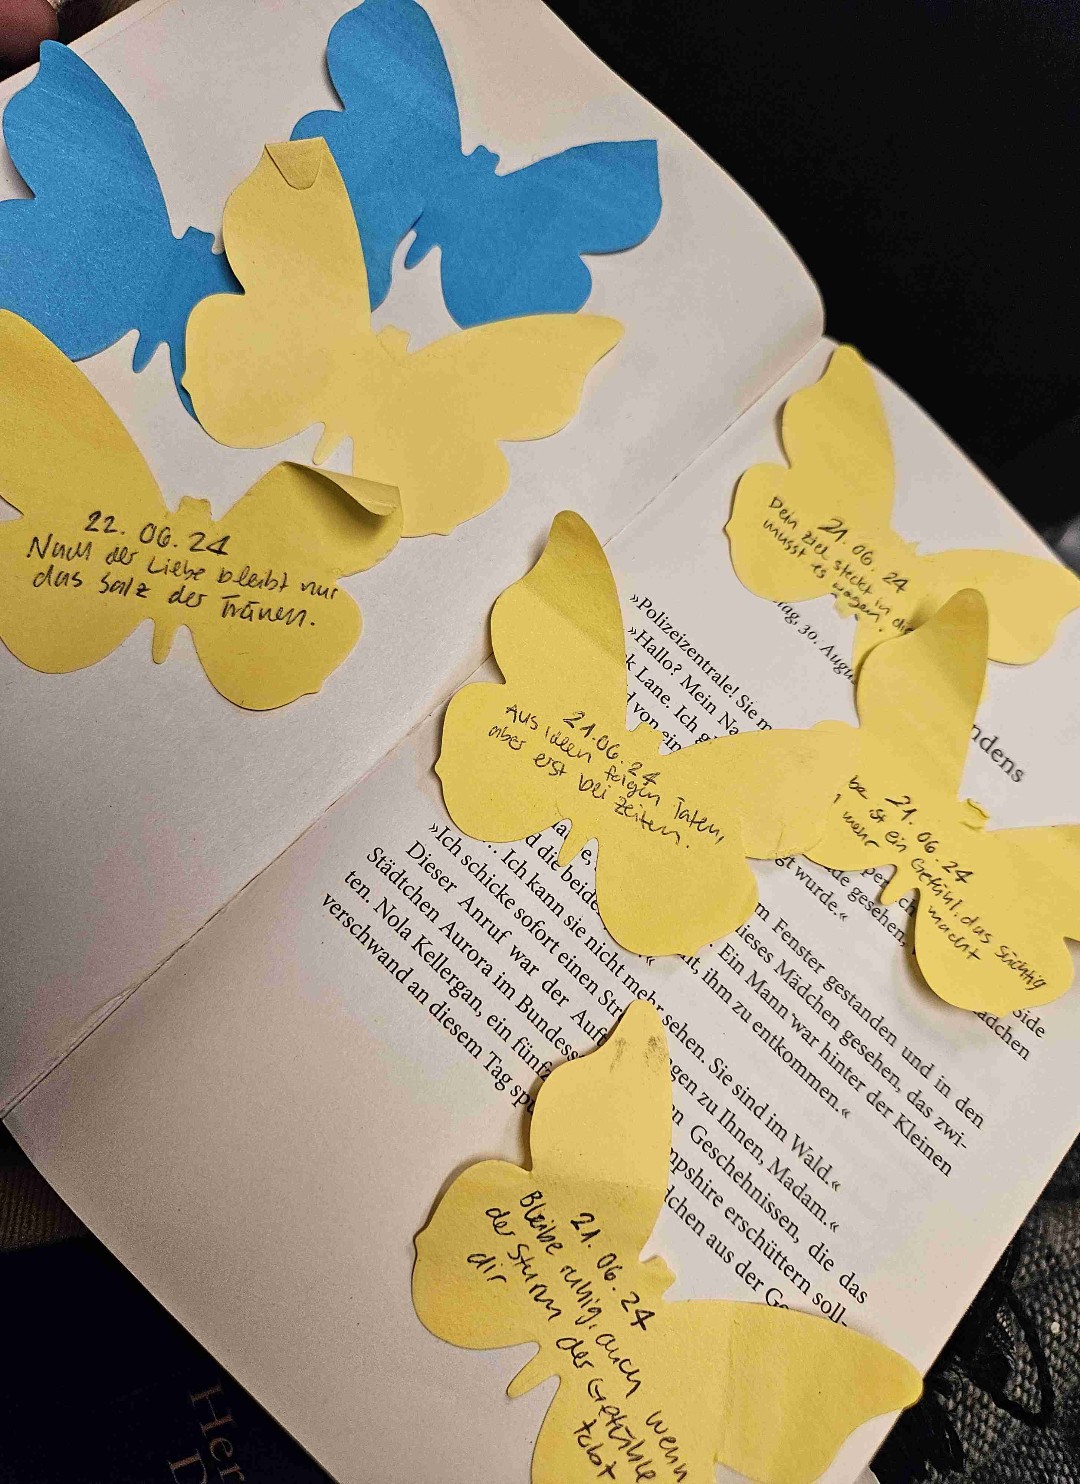 22. 06. 24
Nach der Liebe bleibt nur
das Salz der Tränen.
21. 06. 24
Dein Ziel steckt in dir
musst es wagen.
21.06.24
Aus Ideen folgen Taten,
aber erst bei Zeiten.
21. 06. 24
be ist ein Gefühl, das süchtig
mehr macht
21. 06. 24
Bleibe ruhig, auch wenn
der Sturm der Gefühle
dir tobt
ag, 30. Augu
ndens
»Polizeizentrale! Sie m
»Hallo? Mein Na
k Lane. Ich g
d von ein
gt wurde.«
de gesehen,
Side
ädchen
d die beide
m Fenster gestanden und in den
ieses Mädchen gesehen, das zwi-
. Ein Mann war hinter der Kleinen
ut, ihm zu entkommen.«
... Ich kann sie nicht mehr sehen. Sie sind im Wald.«
»Ich schicke sofort einen Str ogen zu Ihnen, Madam.«
Dieser Anruf war der Auft en Geschehnissen, die das
Städtchen Aurora im Bundess mpshire erschüttern soll-
ten. Nola Kellergan, ein fünfz dchen aus der Ge
verschwand an diesem Tag spu
Her
D